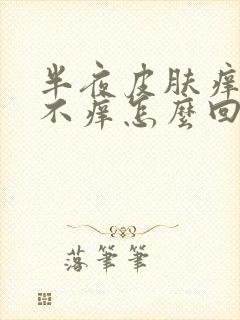 半夜皮肤痒
不痒怎麼回
落筆筆